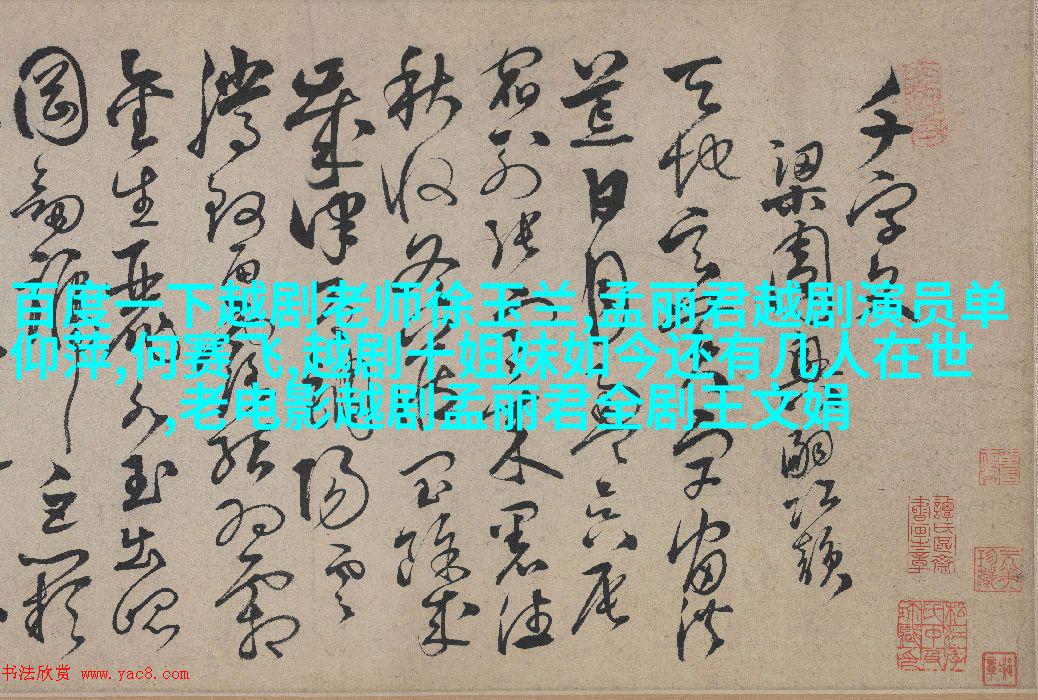 百度一下越剧老师徐玉兰,孟丽君越剧演员单
仰萍,何赛飞,越剧十姐妹如今还有几人在世
,老电影越剧孟丽君全剧王文娟
千字文
梁周興嗣次韻
天地玄黃宇宙洪
荒日月盈昃辰
宿列張寒来暑往
秋收冬藏閏餘成
歲律呂調陽雲
騰致雨露結為霜
金生麗水玉出崑
岡劍號巨闕
书法欣赏 www.yac8.com